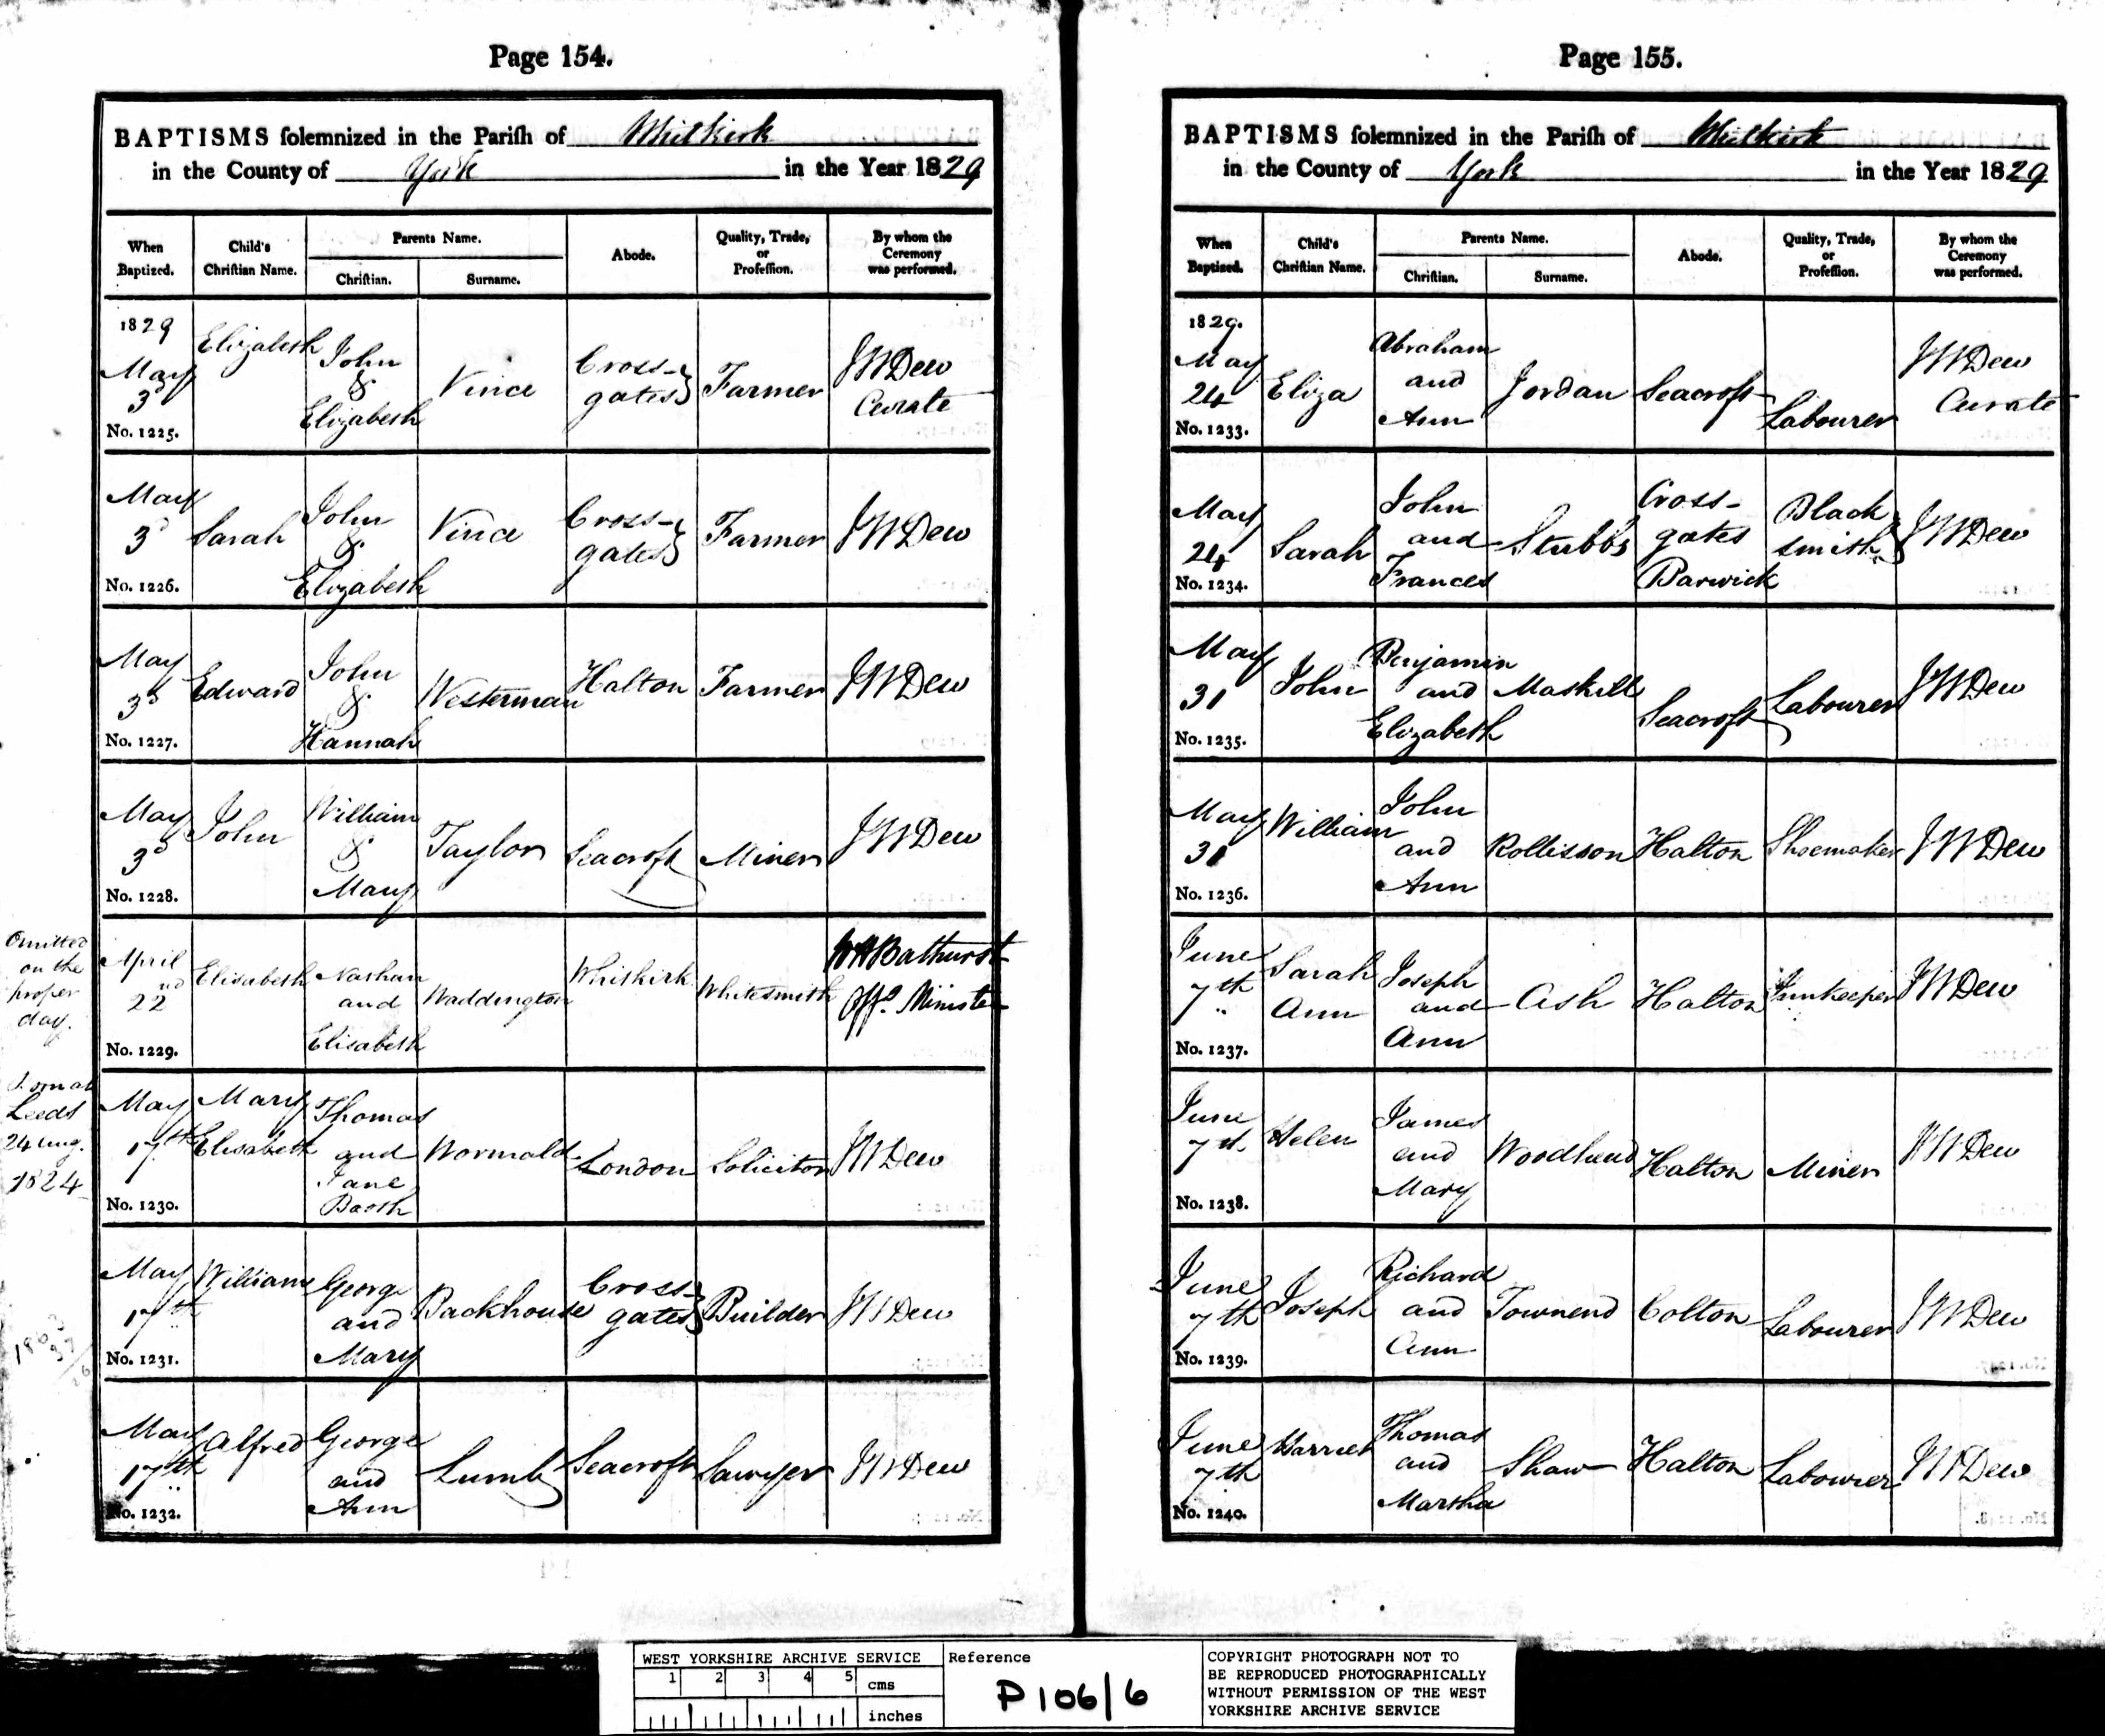 Page 154.
BAPTISMS ſolemnized in the Pariſh of Whitkirk
in the County of York in the Year 1829
When Baptized. Child's Chriſtian Name. Parents Name. Chriſtian. Surname. Abode. Quality, Trade, or Profeſſion. By whom the Ceremony was performed.
1829
May 3d Elizabeth John & Elizabeth Vince Cross-gates Farmer JW Dew Curate
No. 1225.
May 3d Sarah John & Elizabeth Vince Cross-gates Farmer JW Dew
No. 1226.
May 3d Edward John & Hannah Westerman Halton Farmer JW Dew
No. 1227.
May 3d John William & Mary Taylor Seacroft Miner JW Dew
No. 1228.
Omitted
on the
proper
day.
April 22nd Elisabeth Nathan and Elisabeth Waddington Whitkirk Whitesmith Bathurst Offg. Minister
No. 1229.
Leeds
24 Aug.
1824
May 17th Mary Elisabeth Thomas and Jane Booth Wormald London Solicitor JW Dew
No. 1230.
May 17th William George and Mary Backhouse Cross-gates Builder JW Dew
No. 1231.
May 17th Alfred George and Ann Lumb Seacroft Sawyer JW Dew
No. 1232.
Page 155.
BAPTISMS ſolemnized in the Pariſh of Whitkirk
in the County of York in the Year 1829
When Baptized. Child's Chriſtian Name. Parents Name. Chriſtian. Surname. Abode. Quality, Trade, or Profeſſion. By whom the Ceremony was performed.
1829.
May 24 Eliza Abraham and Ann Jordan Seacroft Labourer JW Dew Curate
No. 1233.
May 24 Sarah John and Frances Stubbs Cross-gates Barwick Black smith JW Dew
No. 1234.
May 31 John Benjamin and Elizabeth Maskill Seacroft Labourer JW Dew
No. 1235.
May 31 William John and Ann Rollisson Halton Shoemaker JW Dew
No. 1236.
June 7th Sarah Ann Joseph and Ann Ash Halton Innkeeper JW Dew
No. 1237.
June 7th Helen James and Mary Woodhead Halton Miner JW Dew
No. 1238.
June 7th Joseph Richard and Ann Townend Colton Labourer JW Dew
No. 1239.
June 7th Harriet Thomas and Martha Shaw Halton Labourer JW Dew
No. 1240.
WEST YORKSHIRE ARCHIVE SERVICE
1 2 3 4 5 cms
inches
Reference
P106/6
COPYRIGHT PHOTOGRAPH NOT TO
BE REPRODUCED PHOTOGRAPHICALLY
WITHOUT PERMISSION OF THE WEST
YORKSHIRE ARCHIVE SERVICE